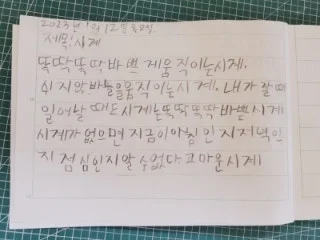 2023년 1월 12일 목요일
제목: 시계
뚝딱뚝딱 바쁘게 움직이는 시계.
쉬지 않 바늘을 움직이는 시계. 내가 잘 때
일어날 때도 시계는 뚝딱뚝딱 바쁜 시계
시계가 없으면 지금이 아침인지 저녁인
지 점심인지 알 수 없다 고마운 시계